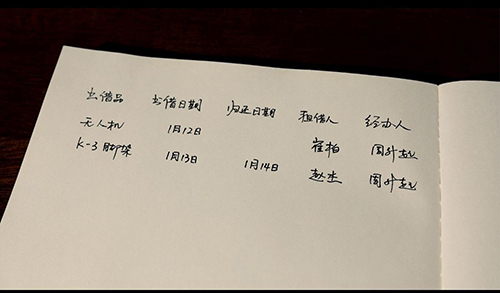 出借品 出借日期 归还日期 租借人 经办人
无人机 1月12日 崔柏 周升超
K-3脚架 1月13日 1月14日 赵杰 周升超